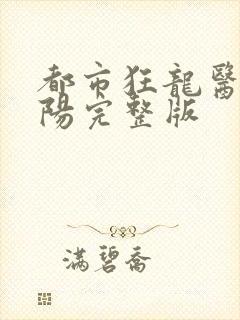 都市狂龍醫
陽完整版
滿碧喬